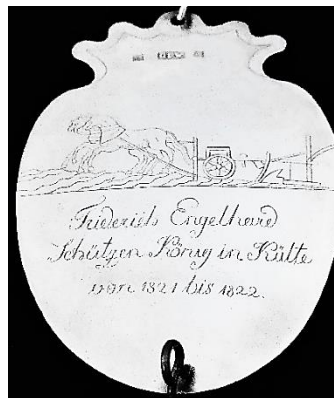 Friderich Engelhard
Schützen König in Külte
von 1821 bis 1822.